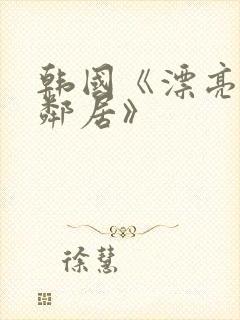 韩国《漂亮
鄰居》
徐慧